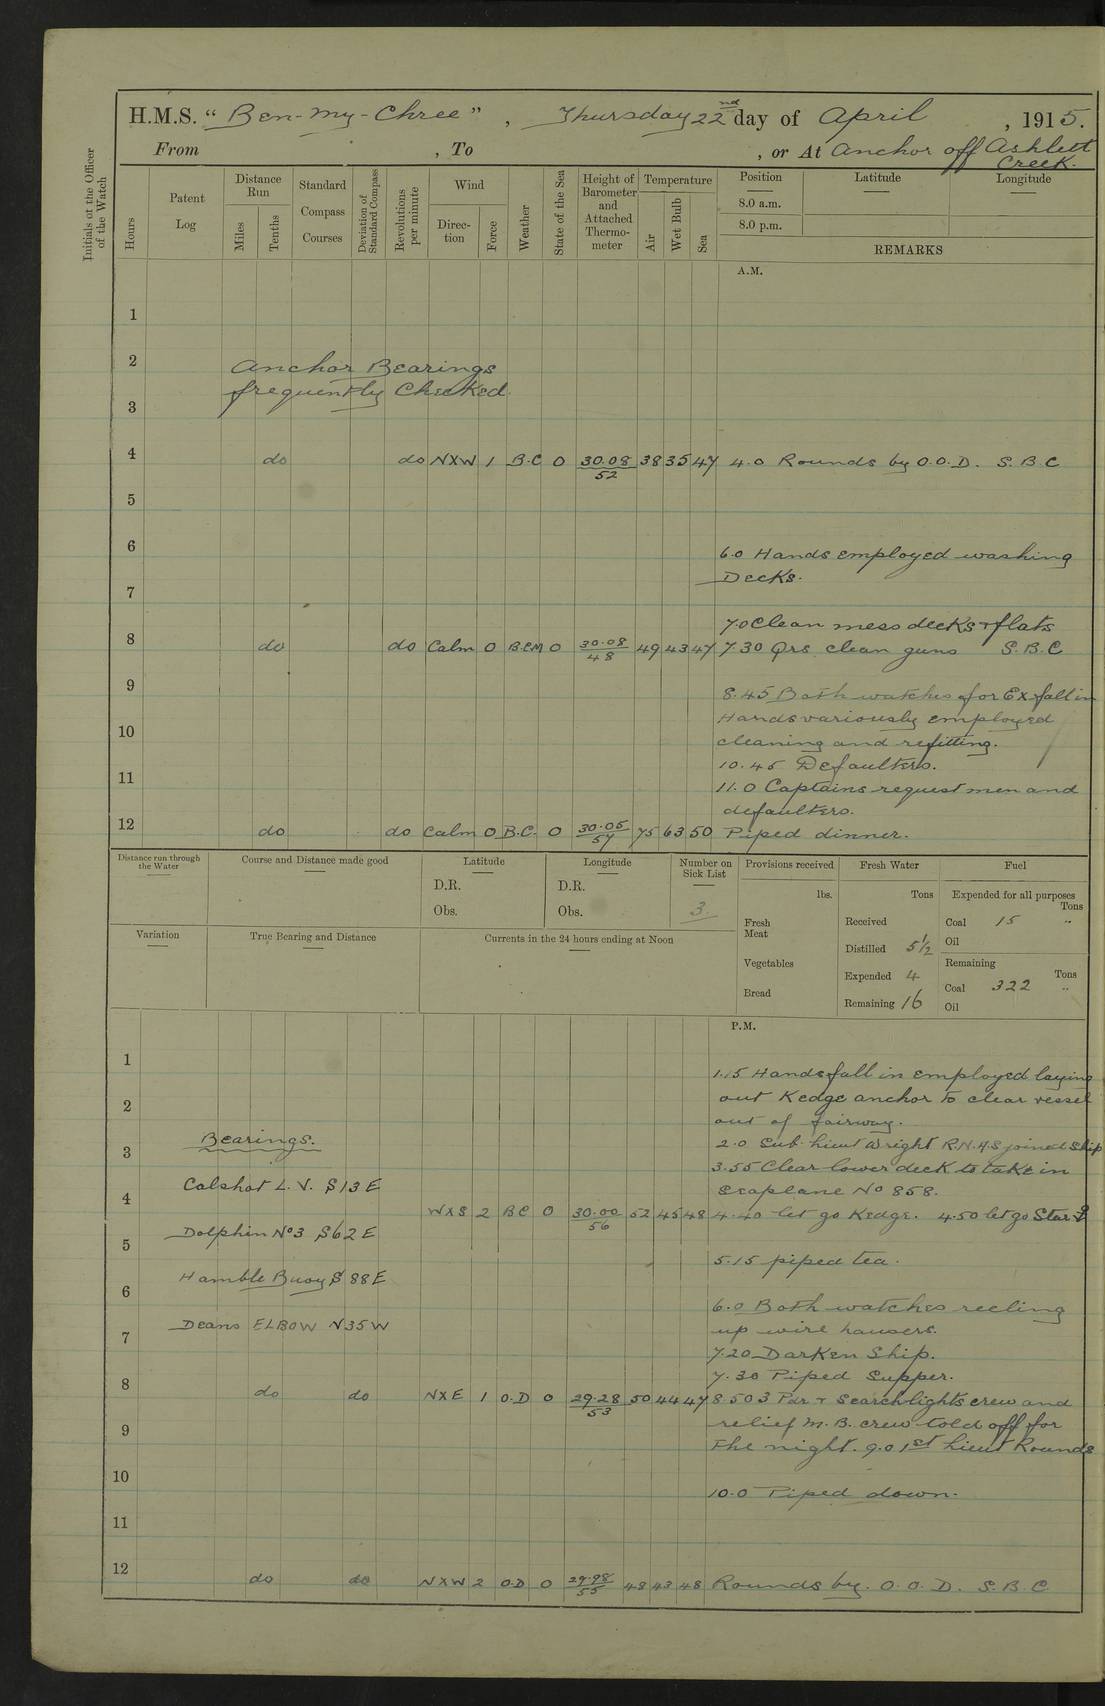 H.M.S. “Ben-my-Chree”, Thursday 22nd day of April, 1915.
From , To , or At Anchor off Ashlett
Creek.
Initials of the Officer of the Watch
Hours
Patent Log
Distance Run
Miles
Tenths
Standard Compass Courses
Deviation of Standard Compass
Revolutions per minute
Wind
Direction
Force
Weather
State of the Sea
Height of Barometer and Attached Thermometer
Temperature
Air
Wet Bulb
Sea
Position Latitude Longitude
8.0 a.m.
8.0 p.m.
REMARKS
A.M.
1
2
Anchor Bearings
frequently Checked.
3
4 do do NXW 1 B.C 0 30.08/52 38 35 47 4.0 Rounds by O.O.D. S.B.C
5
6
6.0 Hands employed washing
Decks.
7
7.0 Clean mess decks + flats
8 do do Calm 0 B.C.M 0 30.08/48 49 43 47 7.30 Qrs clean guns S.B.C
9
8.45 Both watches for Ex fall in
Hands variously employed
10
cleaning and refitting.
10.45 Defaulters.
11
11.0 Captains request men and
defaulters.
12 do do Calm 0 B.C. 0 30.05/57 75 63 50 Piped dinner.
Distance run through the Water
Course and Distance made good
Latitude
D.R.
Obs.
Longitude
D.R.
Obs.
Number on Sick List
3
Provisions received
lbs.
Fresh Meat
Vegetables
Bread
Fresh Water
Tons
Received
Distilled 5½
Expended 4
Remaining 16
Fuel
Expended for all purposes
Tons
Coal 15 „
Oil
Remaining
Tons
Coal 322 „
Oil
Variation
True Bearing and Distance
Currents in the 24 hours ending at Noon
P.M.
1
1.15 Hands fall in employed laying
out Kedge anchor to clear vessel
2
out of fairway.
Bearings.
2.0 Sub. Lieut Wright R.N.A.S joined ship
3
3.55 Clear lower deck to take in
Calshot L.V. S13E
Seaplane No 858.
4
WXS 2 BC 0 30.00/56 52 45 48 4.40 let go Kedge. 4.50 let go Star ⚓
Dolphin No3 S62E
5
5.15 piped tea.
Hamble Buoy S88E
6
6.0 Both watches reeling
Deans ELBOW N35W
up wire hawsers.
7
7.20 Darken Ship.
7.30 Piped Supper.
8 do do NXE 1 O.D 0 29.28/53 50 44 47 8.50 3 Pdr + Searchlights crew and
relief M.B. crew told off for
9
the night. 9.0 1st Lieut Rounds
10
10.0 Piped down.
11
12 do do NXW 2 O.D 0 29.98/55 48 43 48 Rounds by O.O.D. S.B.C